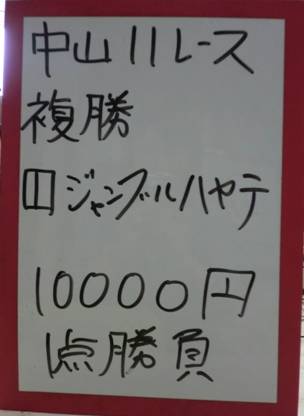 中山11レース
複勝
⑪ジャングルハヤテ
10000円
1点勝負